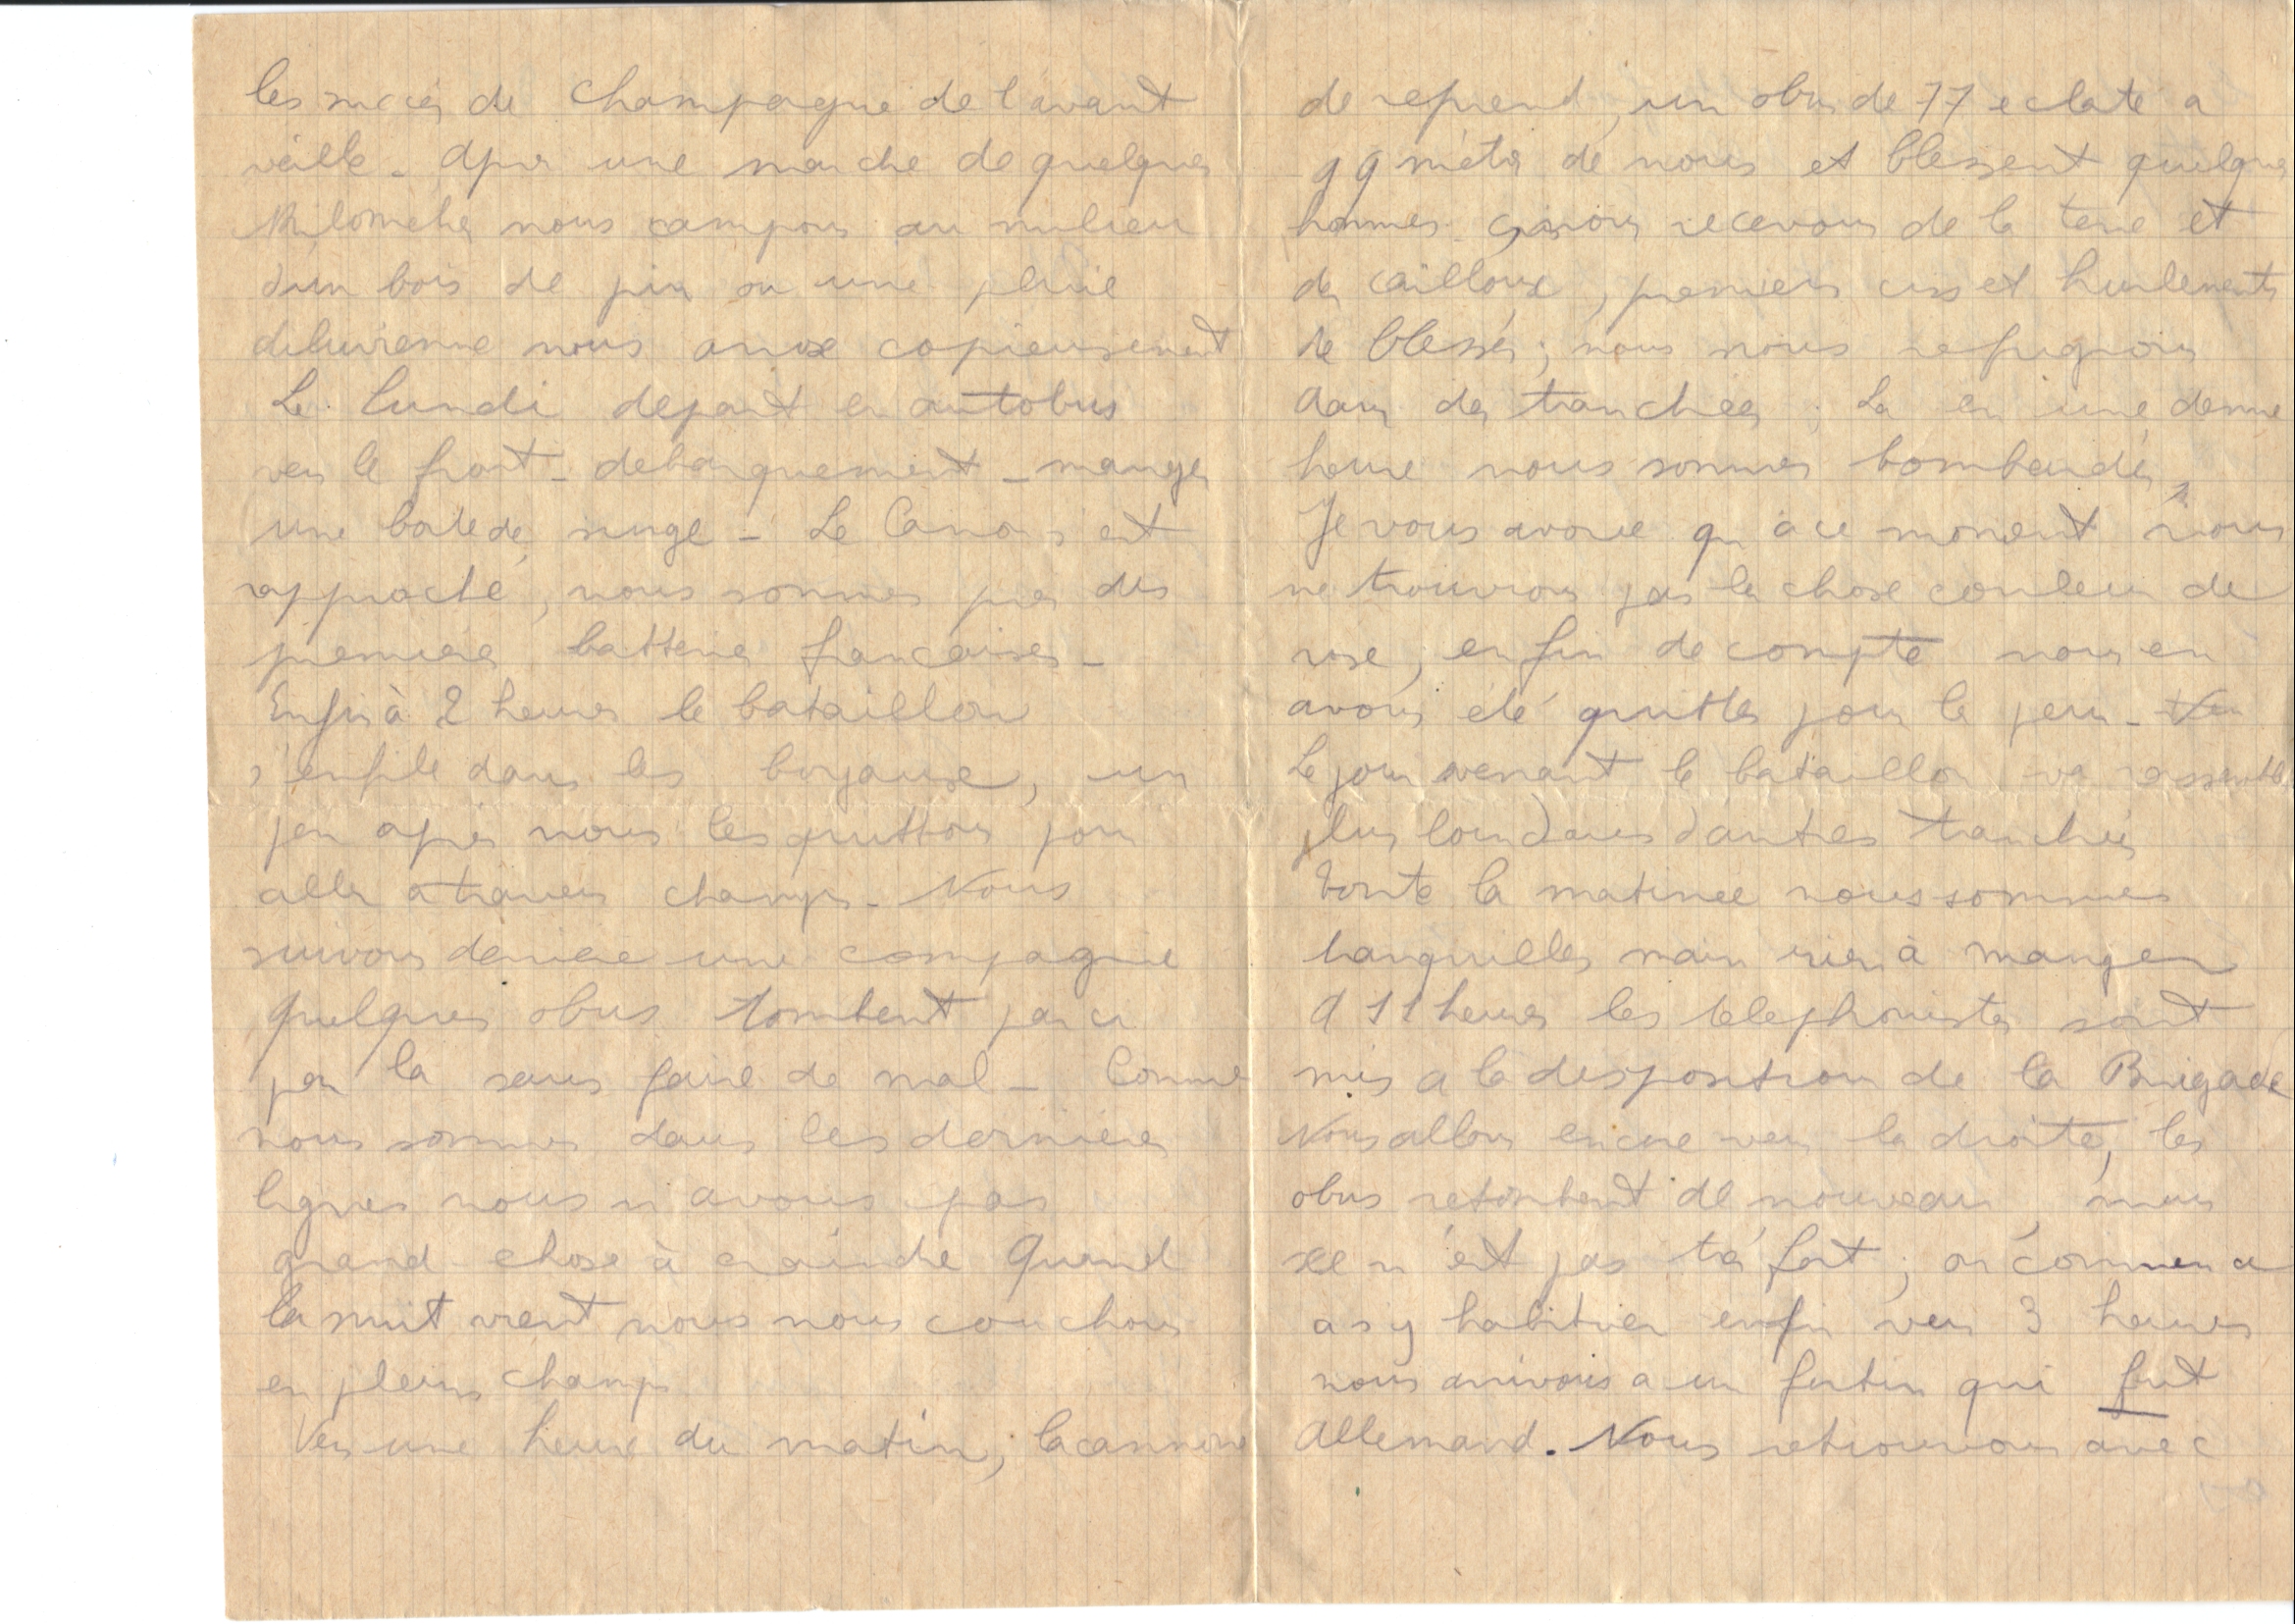 les succès de Champagne de l'avant
veille. Après une marche de quelques
Kilometres nous campons au milieu
d'un bois de pin ou une pluie
diluvienne nous arrose copieusement
Le lundi depart en autobus
vers le front - debarquement - mange
une boite de singe - Le Canon s est
rapproché, nous sommes pres des
premieres batteries françaises -
Enfin à 2 heures le bataillon
s'enfile dans les boyaux, un
peu apres nous les quittons pour
aller a travers champs - Nous
suivons derriere une compagnie
quelques obus tombent par ci
par la sans faire de mal - Comme
nous sommes dans les dernieres
lignes nous n avons pas
grand chose à craindre Quand
la nuit vient nous nous couchons
en pleins champs
Vers une heure du matin, la cannona
de reprend, un obus de 77 eclate a
metres de nous et blessent quelques
hommes nous recevons de la terre et
des cailloux, premiers cris et hurlements
de blessés; nous nous refugions
dans des tranchées; La en une demie
heure nous sommes bombardés,
Je vous avoue qu a ce moment nous
ne trouvions pas la chose couleur de
rose, en fin de compte nous en
avons été quittes pour la peur -
Le jour venant le bataillon va rassembler
plus loin dans d'autres tranchées
toute la matinée nous sommes
tranquilles mais rien à manger
A 11 heures les telephonistes sont
mis a la disposition de la Brigade
Nous allons encore vers la droite, les
obus retombent de nouveau, mais
ce n'est pas très fort; on commen a
a s y habituer enfin vers 3 heures
nous arrivons a un fortin qui fut
Allemand. Nous retrouvons avec